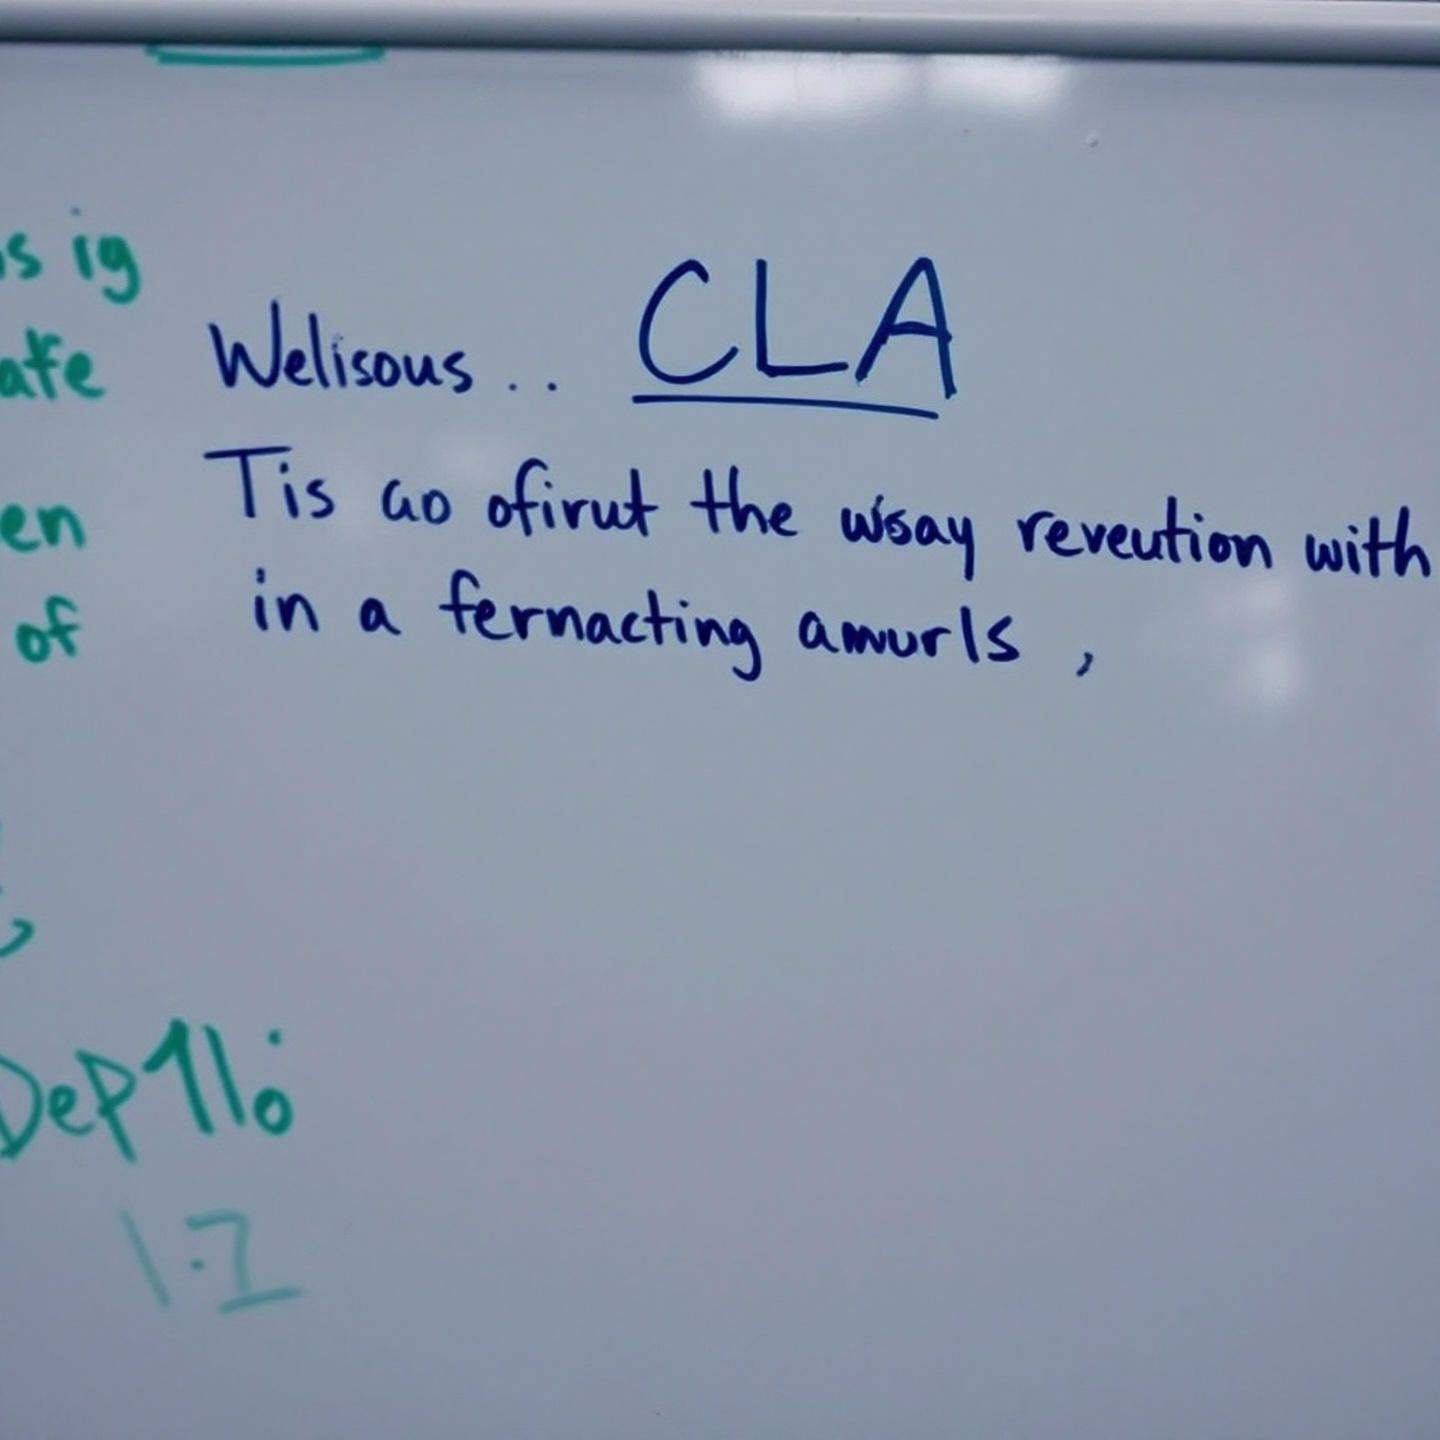 s ig
afe
en
of
Dep11o
1.I
Welisous .. CLA
Tis ao ofirut the wsay reveution with
in a fernacting amurls ,